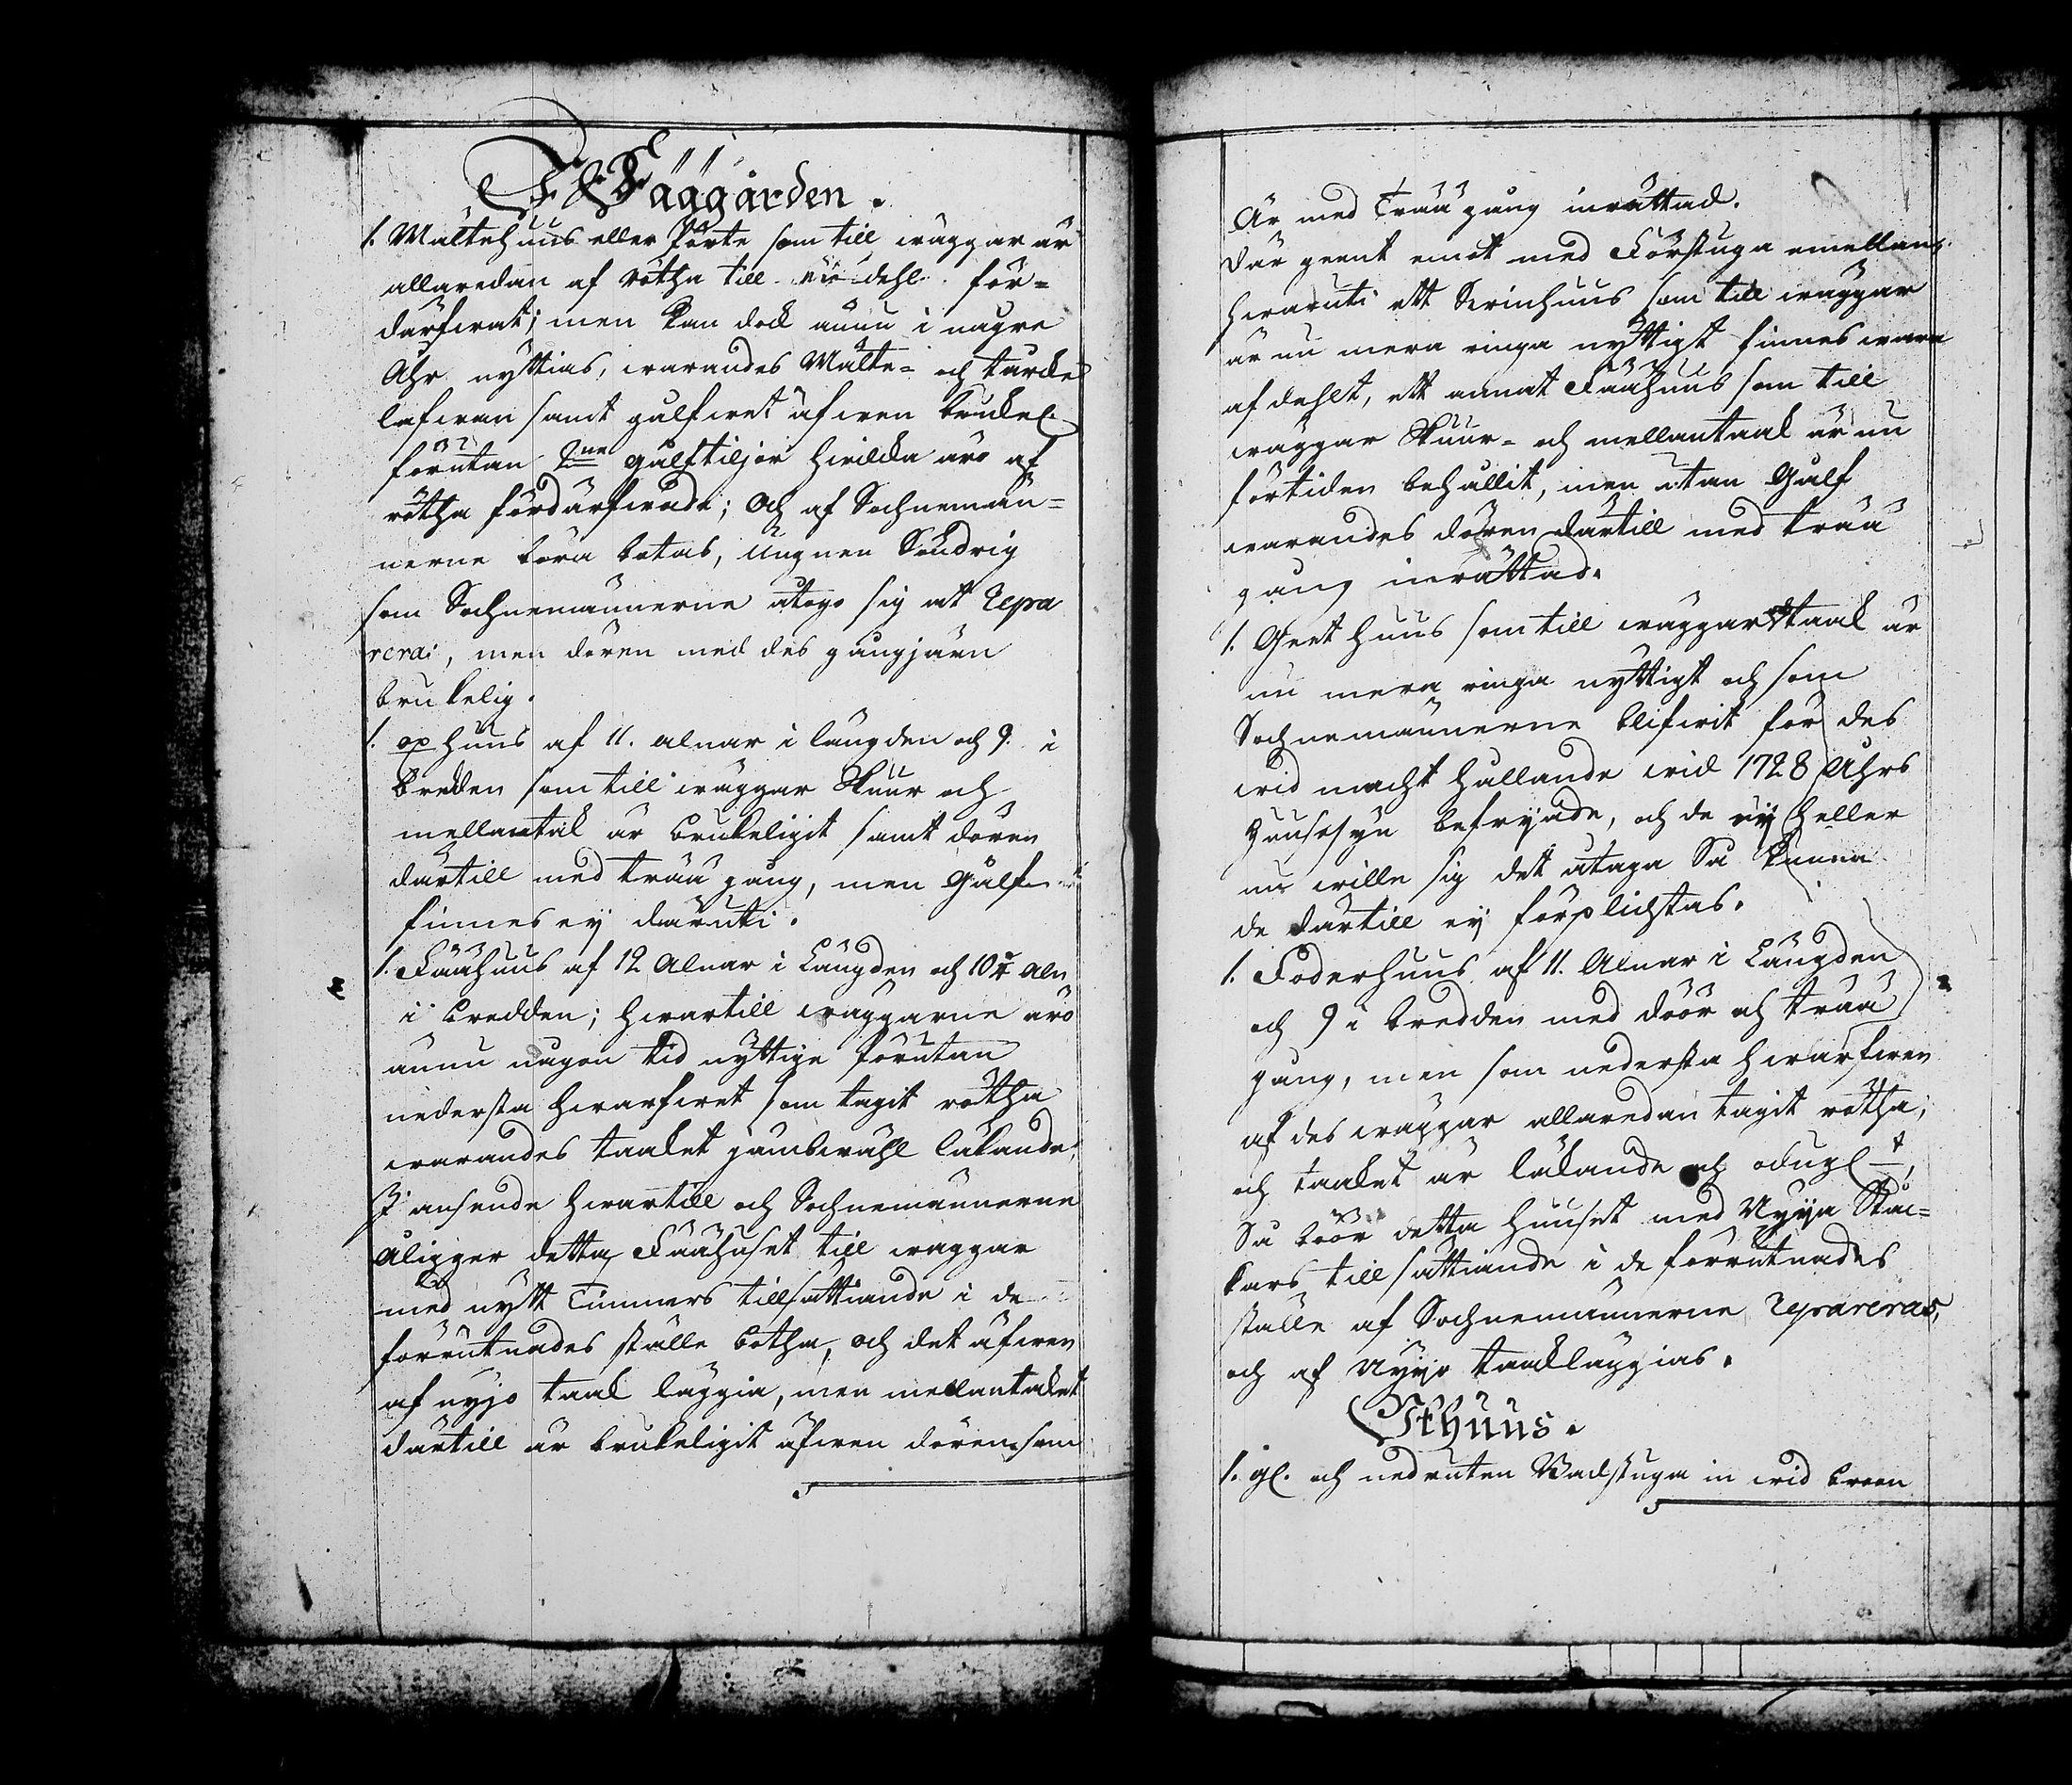 Fäägården.
1. Mältehuus eller Pörte som till wäggar är
allaredan af rötha till en dehl för=
därfwat; men kan dock ännu i någre
Åhr nyttias, warandes Mälte= och tårcke
lafwan samt gålfwet äfwen bruckel.
förutan 2ne gålftiljor hwilcka äro af
rötha fördärfwade; Och af Sochnemän=
nerne böra botas, Ungnen Söndrig
som Sochnemännerne åtogo sig at Repa
rera:, men dören med des gångjärn
brukelig.
1. oxhuus af 11. alnar i längden och 9. i
bredden som till wäggar Skuur och
mellantak är brukeligit samt dören
därtill med trää gång, men Gålf
finnes ey däruti.
1. Fäähuus af 12 Alnar i Längden och 10 Aln
i bredden; hwartill wäggarne äro
ännu någon tid nyttige förutan
nedersta hwarfwet som tagit rötha
warandes taaket jämbwähl läkande,
I anseende hwartill och Sochnemännerne
åligger detta Fäähuset till wäggar
med nytt Timmers tillsättiande i de
förrutnades ställe botha, och det äfwen
af nyjo taak läggia, men mellantaket
därtill är brukeligit äfwen dören som
Är med Trää gång inrättad.
Där geent emot med Förstuga emellan,
hwaruti ett Swinhuus som till wäggar
är nu mera ringa nyttigt finnes wara
afdehlt, ett annat Fäähuus som till
wäggar Skuur= och mellantaak är nu
förtiden behållit, men utan Gålf
warandes dören därtill med trää
gång inrättad.
1. Geet huus som till wäggar & taak är
nu mera ringa nyttigt och som
Sochnemännerne blifwit för des
wid macht hållande wid 1728 Åhrs
Huusesyn befryade, och de ey heller
nu wille sig det åtaga Så kunna
de därtill ey förplichtas.
1. Foderhuus af 11. Alnar i Längden
och 9 i bredden med döör och trää
gång, men som nedersta hwarfwen
af des wäggar allaredan tagit rötha,
och taaket är läkande och odugl t,
Så böör detta huuset med Nyya Stoc=
kars tillsättiande i de förrutnades
ställe af Sochnemännerne Repareras,
och af Nyyo taackläggias.
Uthuus.
1. gl. och nedruten Badstuga in wid broen